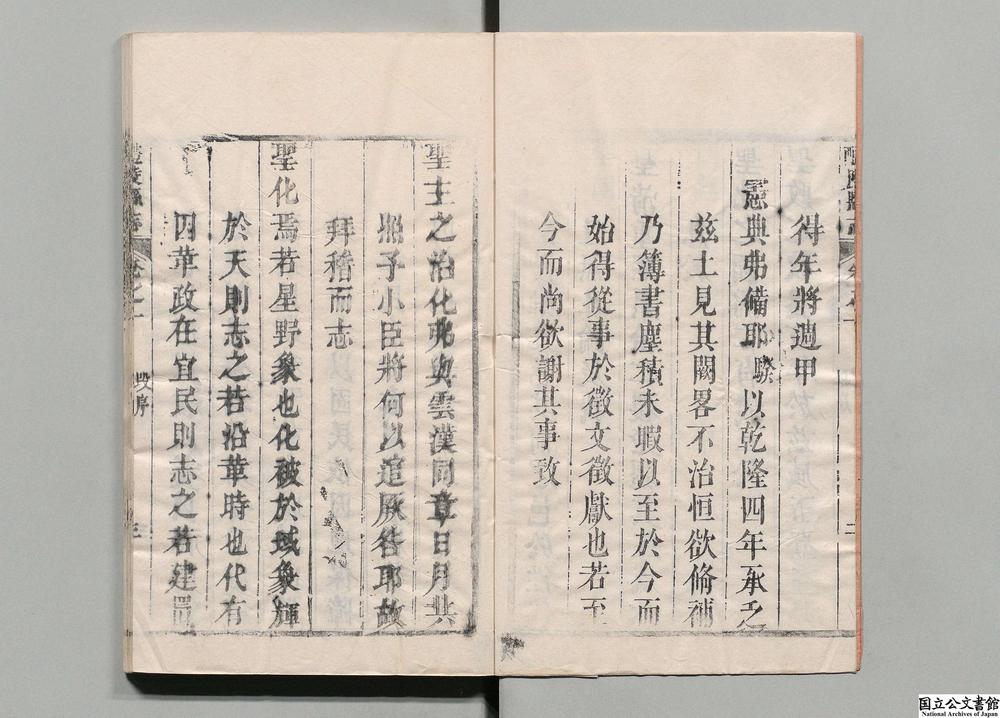 得年將過甲
憲典弗備耶騤以乾隆四年承乏
兹土見其闕畧不治恒欲脩補
乃簿書塵積未暇以至於今而
始得從事於徵文徵獻也若至
今而尚欲謝其事致
聖主之治化弗與雲漢同章日月共
照子小臣將何以逭厥咎耶故
拜稽而志
聖化焉若星野象也化被於域象輝
於天則志之若沿革時也代有
因革政在宜民則志之若建置
卷之一
序
三
国立公文書館
National Archives of Japan